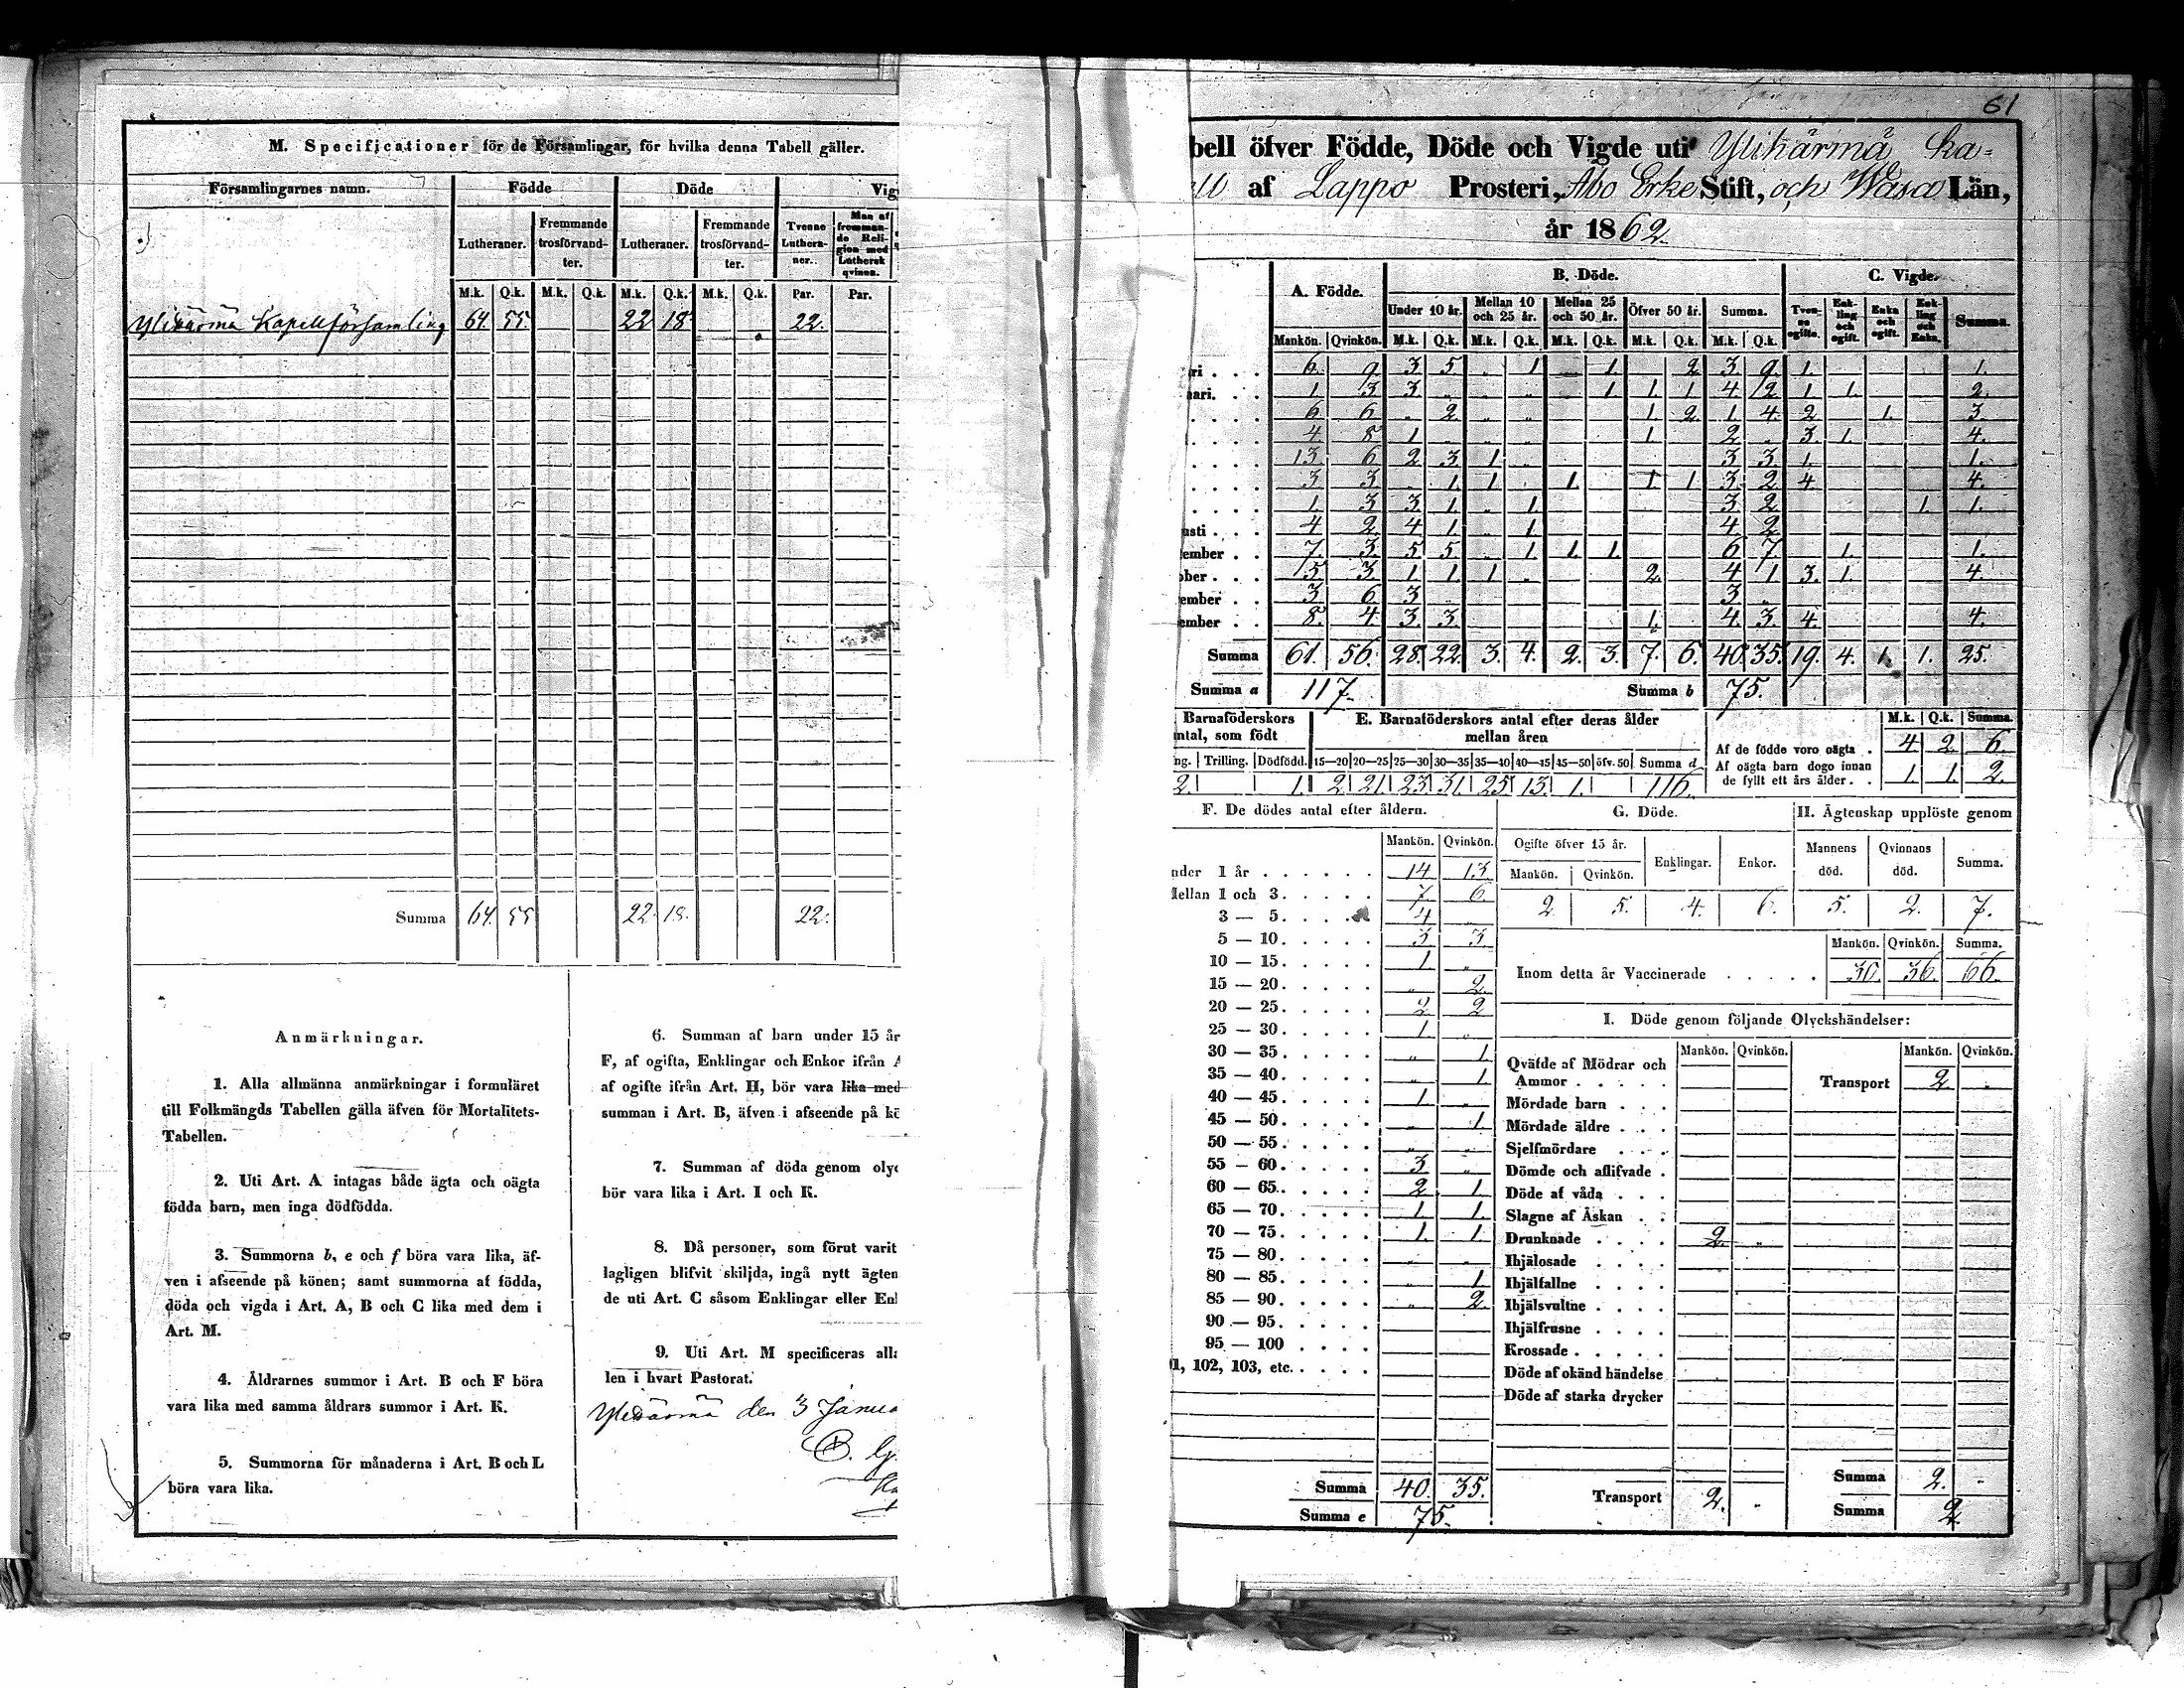 M. Specificationer för de Församlingar, för hvilka denna Tabell gäller.
Församlingarnes namn. Födde Döde Vig
Lutheraner. Fremmande trosförvandter. Lutheraner. Fremmande trosförvandter. Tvenne Lutheraner. Man af fremmande Religion med Luthersk qvinna.
M.k. Q.k. M.k. Q.k. M.k. Q.k. M.k. Q.k. Par. Par.
Ylikärmä Kapellförsamling 64. 55. 22 18. 22.
Summa 64. 55 22. 18. 22.
Anmärkningar.
1. Alla allmänna anmärkningar i formuläret
till Folkmängds Tabellen gälla äfven för Mortalitets-
Tabellen.
2. Uti Art. A intagas både ägta och oägta
födda barn, men inga dödfödda.
3. Summorna b, e och f böra vara lika, äf-
ven i afseende på könen; samt summorna af födda,
döda och vigda i Art. A, B och C lika med dem i
Art. M.
4. Åldrarnes summor i Art. B och F böra
vara lika med samma åldrars summor i Art. K.
5. Summorna för månaderna i Art. B och L
böra vara lika.
6. Summan af barn under 15 år
F, af ogifta, Enklingar och Enkor ifrån
af ogifte ifrån Art. H, bör vara lika med
summan i Art. B, äfven i afseende på kö
7. Summan af döda genom oly
bör vara lika i Art. I och K.
8. Då personer, som förut varit
lagligen blifvit skiljda, ingå nytt ägten
de uti Art. C såsom Enklingar eller En
9. Uti Art. M specificeras all
len i hvart Pastorat.
Ylikärmä den 3 Janua
61
bell öfver Födde, Döde och Vigde uti Ylikärmä ka=
ell af Lappo Prosteri, Åbo Erke Stift, och Wasa Län,
år 1862.
A. Födde. B. Döde. C. Vigde.
Under 10 år. Mellan 10 och 25 år. Mellan 25 och 50 år. Öfver 50 år. Summa. Tvenne ogifte. Enkling och ogift. Enka och ogift. Enkling och Enka. Summa.
Mankön. Qvinkön. M.k. Q.k. M.k. Q.k. M.k. Q.k. M.k. Q.k. M.k. Q.k.
ri . . . 6. 9. 3 5 . 1 . 1. 2 3. 9. 1. 1.
ari. . . 1. 3 3. . . . 1 1. 1 4 2 1. 1. 2.
6 6 . 2 . . 1 2. 1. 4. 2 1. 3
4 8 1 . . . 1. 2 . 3. 1. 4.
13. 6 2 3 1 . 3 3. 1. 1.
3 3. . 1. 1 1. 1. 1 3. 2. 4 4.
1. 3 3 1. . 1. 3 2. 1. 1.
usti . . . 4 2. 4 1. 1. 4. 2
ember . . 7. 3 5 5 . 1. 1. 1. 6 7. 1. 1.
ober . . . 5. 3. 1. 1. 1 . 2. 4 1. 3. 1. 4.
ember . . 3 6 3 3. .
ember . . 8. 4 3 3. 1. 4. 3. 4. 4.
Summa 61. 56. 28. 22. 3. 4. 2. 3. 7. 6. 40. 35. 19. 4. 1. 1. 25.
Summa a 117. Summa b 75.
Barnaföderskors
ntal, som födt
E. Barnaföderskors antal efter deras ålder
mellan åren
ng. Trilling. Dödfödd. 15—20 20—25 25—30 30—35 35—40 40—45 45—50 öfv. 50 Summa d
2. 1. 2. 21. 23. 31. 25. 13. 1. 116.
M.k. Q.k. Summa.
Af de födde voro oägta . 4 2. 6.
Af oägta barn dogo innan
de fyllt ett års ålder. . 1. 1. 2.
F. De dödes antal efter åldern.
Mankön. Qvinkön.
nder 1 år . . . . . . 14 13.
Mellan 1 och 3. . . . . 7. 6.
3 — 5. . . . 4 .
5 — 10. . . . . 3 3
10 — 15. . . . . 1. .
15 — 20. . . . . . 2.
20 — 25. . . . . 2 2
25 — 30. . . . . 1. .
30 — 35. . . . . . 1.
35 — 40. . . . . . 1.
40 — 45. . . . . 1. .
45 — 50. . . . . . 1
50 — 55. . . . . . .
55 — 60. . . . . 3. .
60 — 65. . . . . 2. 1.
65 — 70. . . . . 1. 1.
70 — 75. . . . . 1. 1.
75 — 80. . . . . . .
80 — 85. . . . . . 1.
85 — 90. . . . . . 2.
90 — 95. . . . .
95 — 100 . . . .
1, 102, 103, etc. . . . .
Summa 40. 35.
Summa e 75.
G. Döde.
Ogifte öfver 15 år. Enklingar. Enkor.
Mankön. Qvinkön.
2. 5. 4. 6.
H. Ägtenskap upplöste genom
Mannens död. Qvinnans död. Summa.
5. 2. 7.
Mankön. Qvinkön. Summa.
Inom detta år Vaccinerade . . . . . 30. 36. 66.
I. Döde genom följande Olyckshändelser:
Mankön. Qvinkön. Mankön. Qvinkön.
Qväfde af Mödrar och
Ammor . . . . . Transport 2. .
Mördade barn . . .
Mördade äldre . . .
Sjelfmördare . . .
Dömde och aflifvade .
Döde af våda . . .
Slagne af Åskan . .
Drunknade . . . . 2. .
Ihjälosade . . . .
Ihjälfallne . . . .
Ihjälsvultne . . . .
Ihjälfrusne . . . .
Krossade . . . . .
Döde af okänd händelse
Döde af starka drycker
Transport 2. .
Summa 2. .
Summa 2.